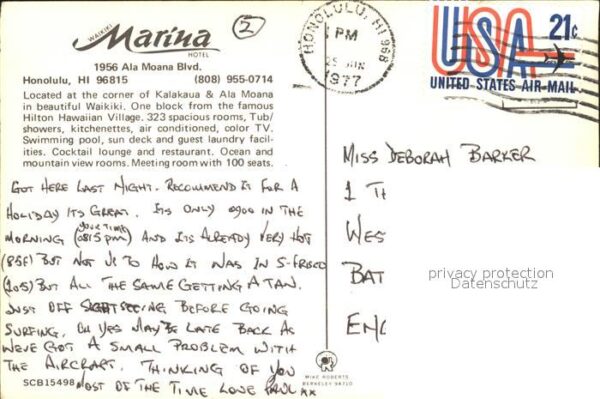 WAIKIKI
Marina
HOTEL
1956 Ala Moana Blvd.
Honolulu, HI 96815 (808) 955-0714
Located at the corner of Kalakaua & Ala Moana
in beautiful Waikiki. One block from the famous
Hilton Hawaiian Village. 323 spacious rooms, Tub/
showers, kitchenettes, air conditioned, color TV.
Swimming pool, sun deck and guest laundry facil-
ities. Cocktail lounge and restaurant. Ocean and
mountain view rooms. Meeting room with 100 seats.
2
HONOLULU, HI 968
PM
1977
USA 21c
UNITED STATES AIR MAIL
GOT HERE LAST NIGHT. RECOMMEND IT FOR A
HOLIDAY ITS GREAT. ITS ONLY 0900 IN THE
MORNING (YOUR TIME 0815 PM) AND ITS ALREADY VERY HOT
(85F) BUT NOT UP TO HOW IT WAS IN S-FRISCO
(105) BUT ALL THE SAME GETTING A TAN.
JUST OFF SIGHTSEEING BEFORE GOING
SURFING. OH YES MAY BE LATE BACK AS
WEVE GOT A SMALL PROBLEM WITH
THE AIRCRAFT. THINKING OF YOU
MOST OF THE TIME LOVE PAUL xx
SCB15498
MISS DEBORAH BARKER
1 TH
WES
BAT
ENG
privacy protection
Datenschutz
MIKE ROBERTS
BERKELEY 94710